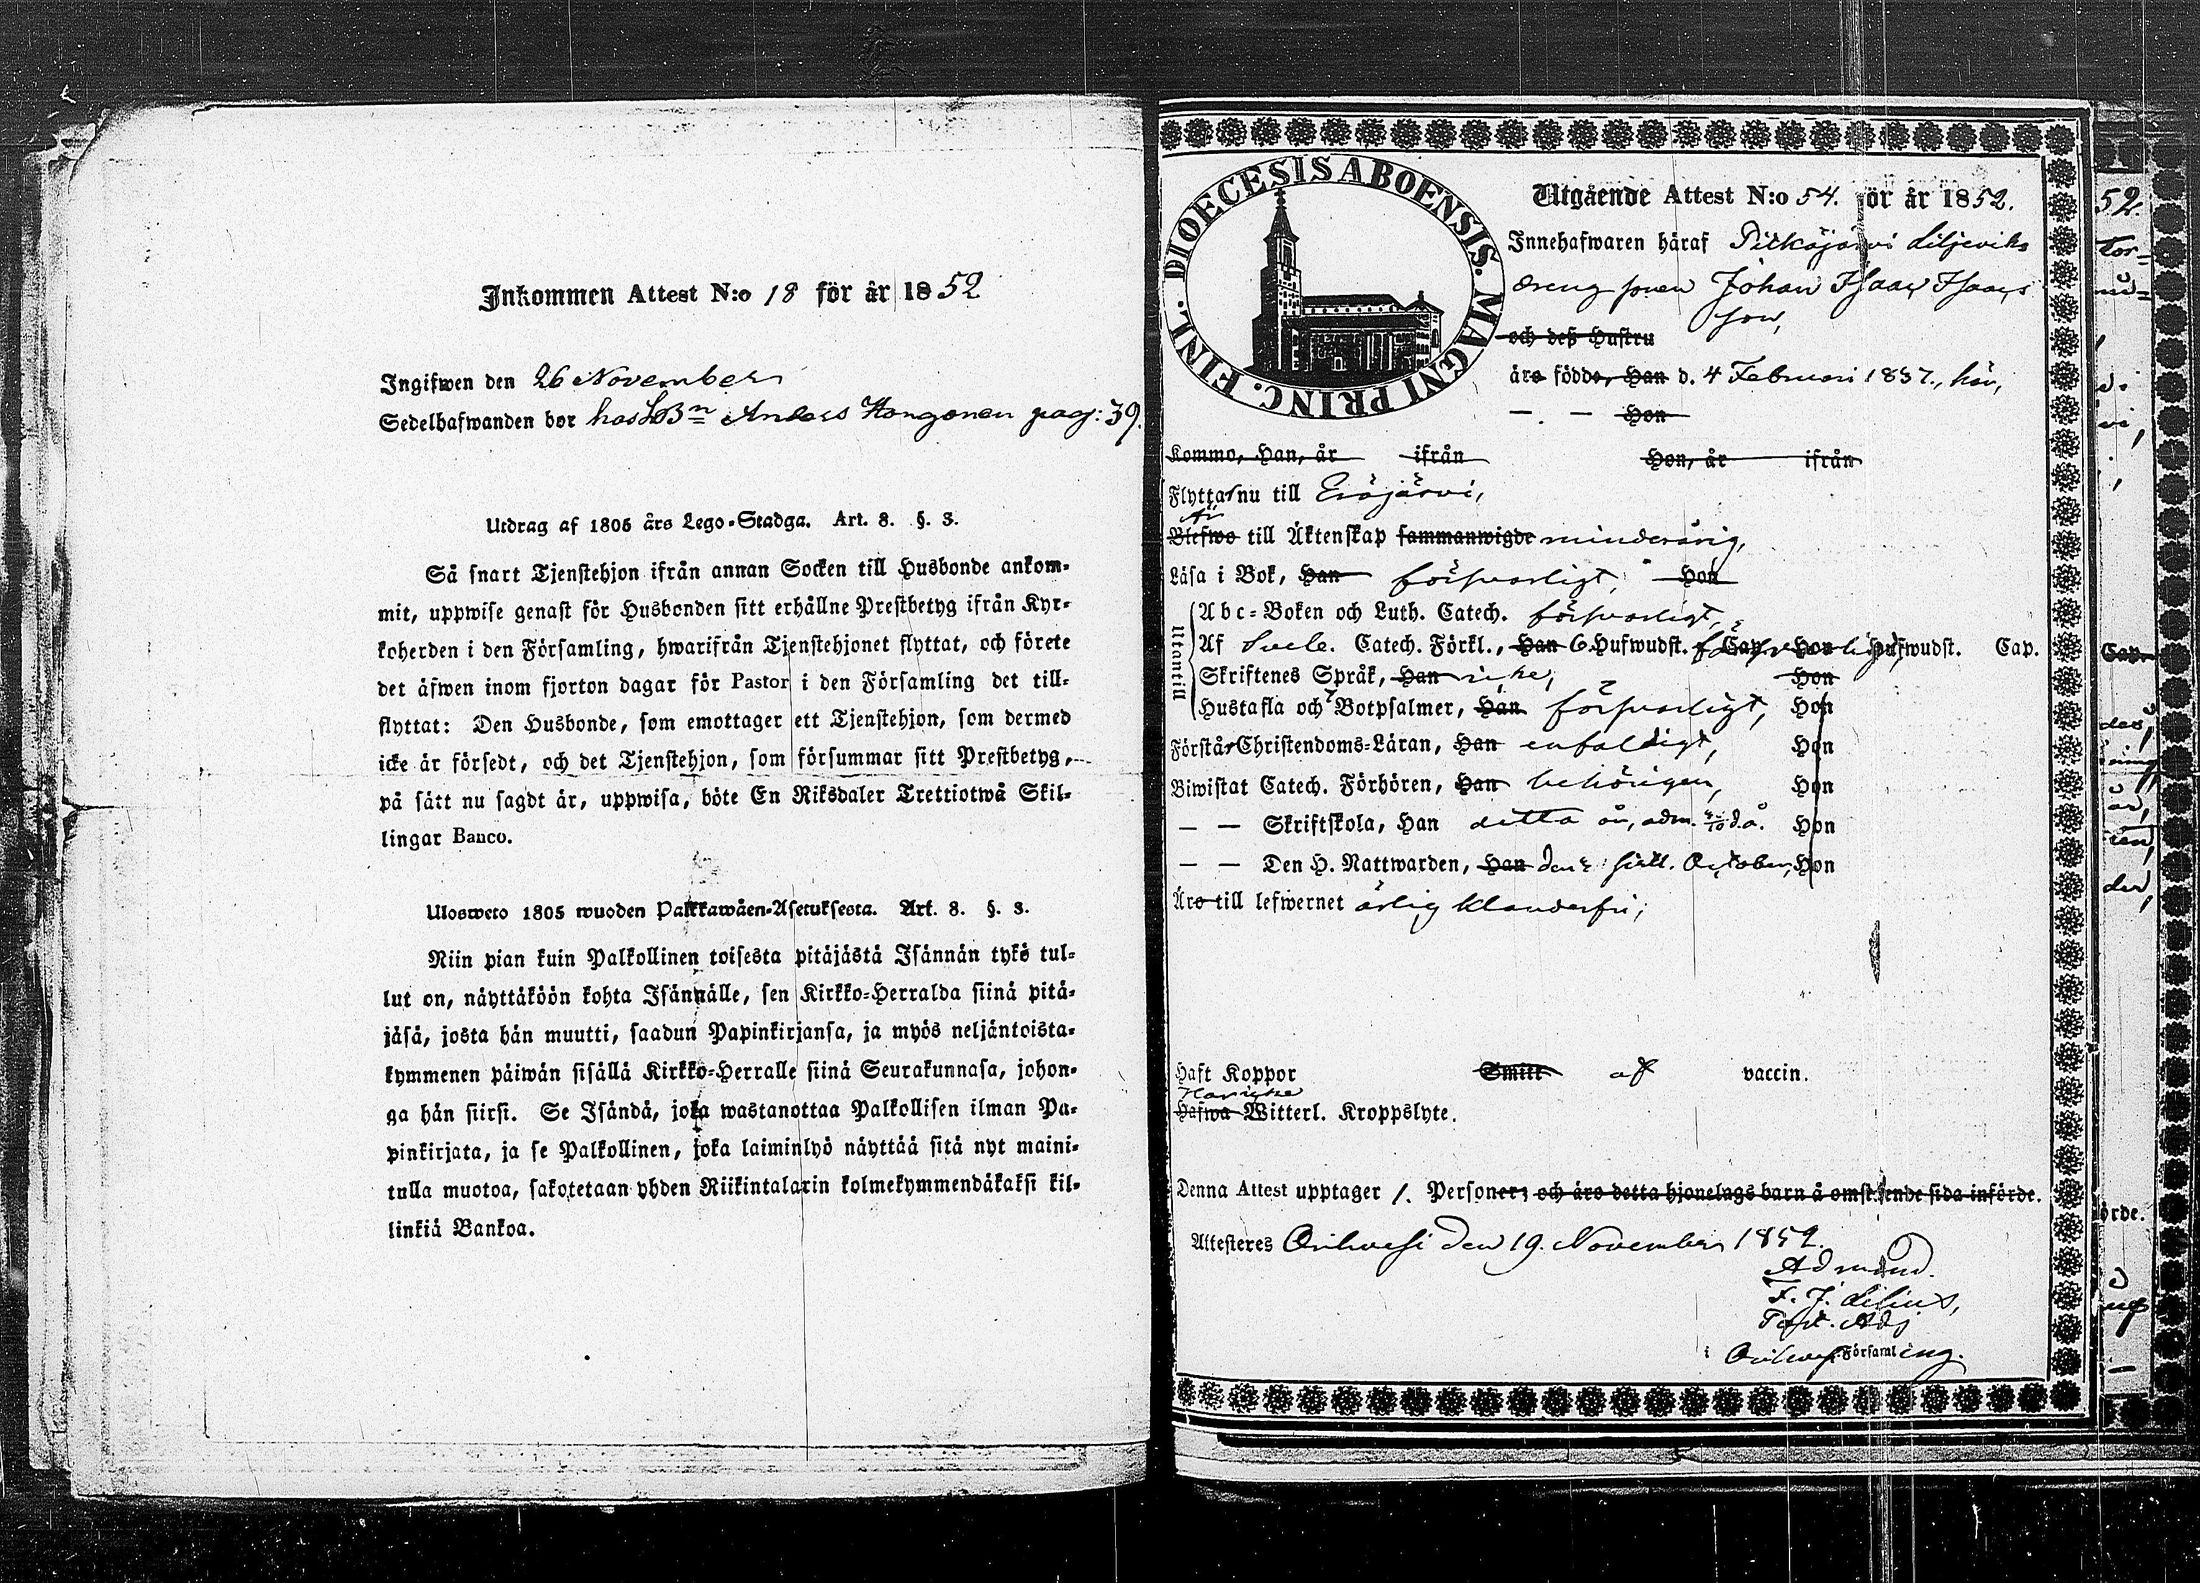 Inkommen Attest N:o 18 för år 1852
Ingifwen den 26 November
Sedelhafwanden bor hos LBn Anders Hongonen pag: 39.
Utdrag af 1805 års Lego-Stadga. Art. 8. §. 3.
Så snart Tjenstehjon ifrån annan Socken till Husbonde ankom-
mit, uppwise genast för Husbonden sitt erhållne Prestbetyg ifrån Kyr-
koherden i den Församling, hwarifrån Tjenstehjonet flyttat, och förete
det äfwen inom fjorton dagar för Pastor i den Församling det till-
flyttat: Den Husbonde, som emottager ett Tjenstehjon, som dermed
icke är försedt, och det Tjenstehjon, som försummar sitt Prestbetyg,
på sätt nu sagdt är, uppwisa, böte En Riksdaler Trettiotwå Skil-
lingar Banco.
Ulosweto 1805 wuoden Palkkawäen-Asetuksesta. Art. 8. §. 3.
Niin pian kuin Palkollinen toisesta pitäjästä Isännän tykö tul-
lut on, näyttäköön kohta Isännälle, sen Kirkko-Herralda siinä pitä-
jäsä, josta hän muutti, saadun Papinkirjansa, ja myös neljäntoista-
kymmenen päiwän sisällä Kirkko-Herralle siinä Seurakunnasa, johon-
ga hän siirsi. Se Isändä, joka wastanottaa Palkollisen ilman Pa-
pinkirjata, ja se Palkollinen, joka laiminlyö näyttää sitä nyt maini-
tulla muotoa, sakotetaan yhden Riikintalarin kolmekymmendäkaksi kil-
linkiä Bankoa.
DIOECESIS ABOENSIS. MAGNI PRINC. FINL.
Utgående Attest N:o 54. för år 1852.
Innehafwaren häraf Pitkäjärvi Liljeviks
dreng sonen Johan Isaac Isaacs
son,
och deß Hustru
äro födde, Han d. 4 Februari 1837, här,
— — Hon
Kommo, Han, år ifrån Hon, år ifrån
Flyttar nu till Eräjärvi,
Är
Blefwo till Äktenskap sammanwigde minderårig,
Läsa i Bok, Han försvarligt, Hon
Utantill
Abc-Boken och Luth. Catech. försvarligt,
Af Sveb. Catech. Förkl., Han 6 Hufwudst. Cap. försvarligt, Hon Hufwudst. Cap.
Skriftenes Språk, Han icke, Hon
Hustafla och Botpsalmer, Han försvarligt, Hon
Förstår Christendoms-Läran, Han enfaldigt, Hon
Biwistat Catech. Förhören, Han behörigen, Hon
— — Skriftskola, Han detta år, adm. d.å. Hon
— — Den H. Nattwarden, Han October, Hon
Äro till lefwernet ärlig klanderfri;
Haft Koppor Smitt af vaccin.
Har icke
Hafwa Witterl. Kroppslyte.
Denna Attest upptager 1. Personer; och äro detta hjonelags barn å omstående sida införde.
Attesteres Orihvesi den 19. November 1852.
Ad mand.
F. J. Lilius,
Past. Adj
i Orihvesi Församling.
52.
Cap.
örde.